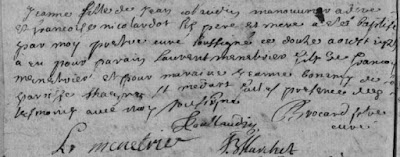 jeanne fille de jean collaudin manouvrier a dere
et francoise nicolardot ses pere et mere a este baptisé
par moy pretre curé soussigné ce douze aoust
a eu pour parain laurent menetrier fils de francois
menetrier et pour maraine jeanne
paroisse st medart faits presence des
tesmoins avec moy soussigné
Collaudin Brocard ptre
curé
Le menetrier Blanchet